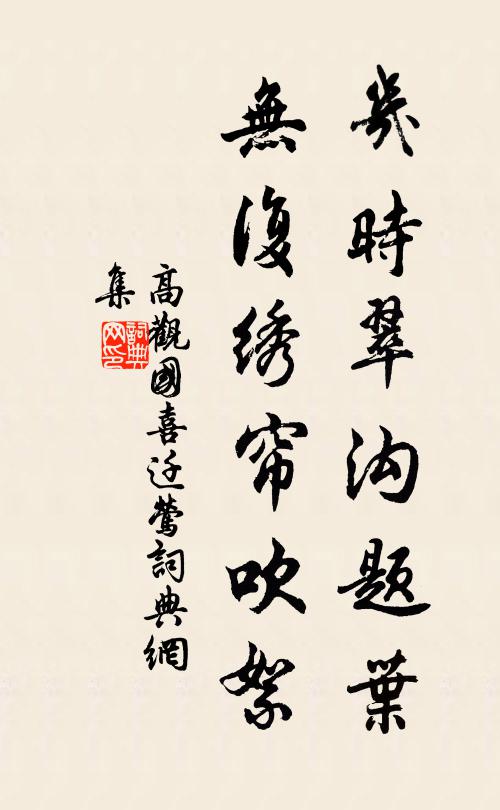 幾時翠沟題葉
無復绣帘吹絮
高觀國喜迁鶯詞典網
集
詞典網印